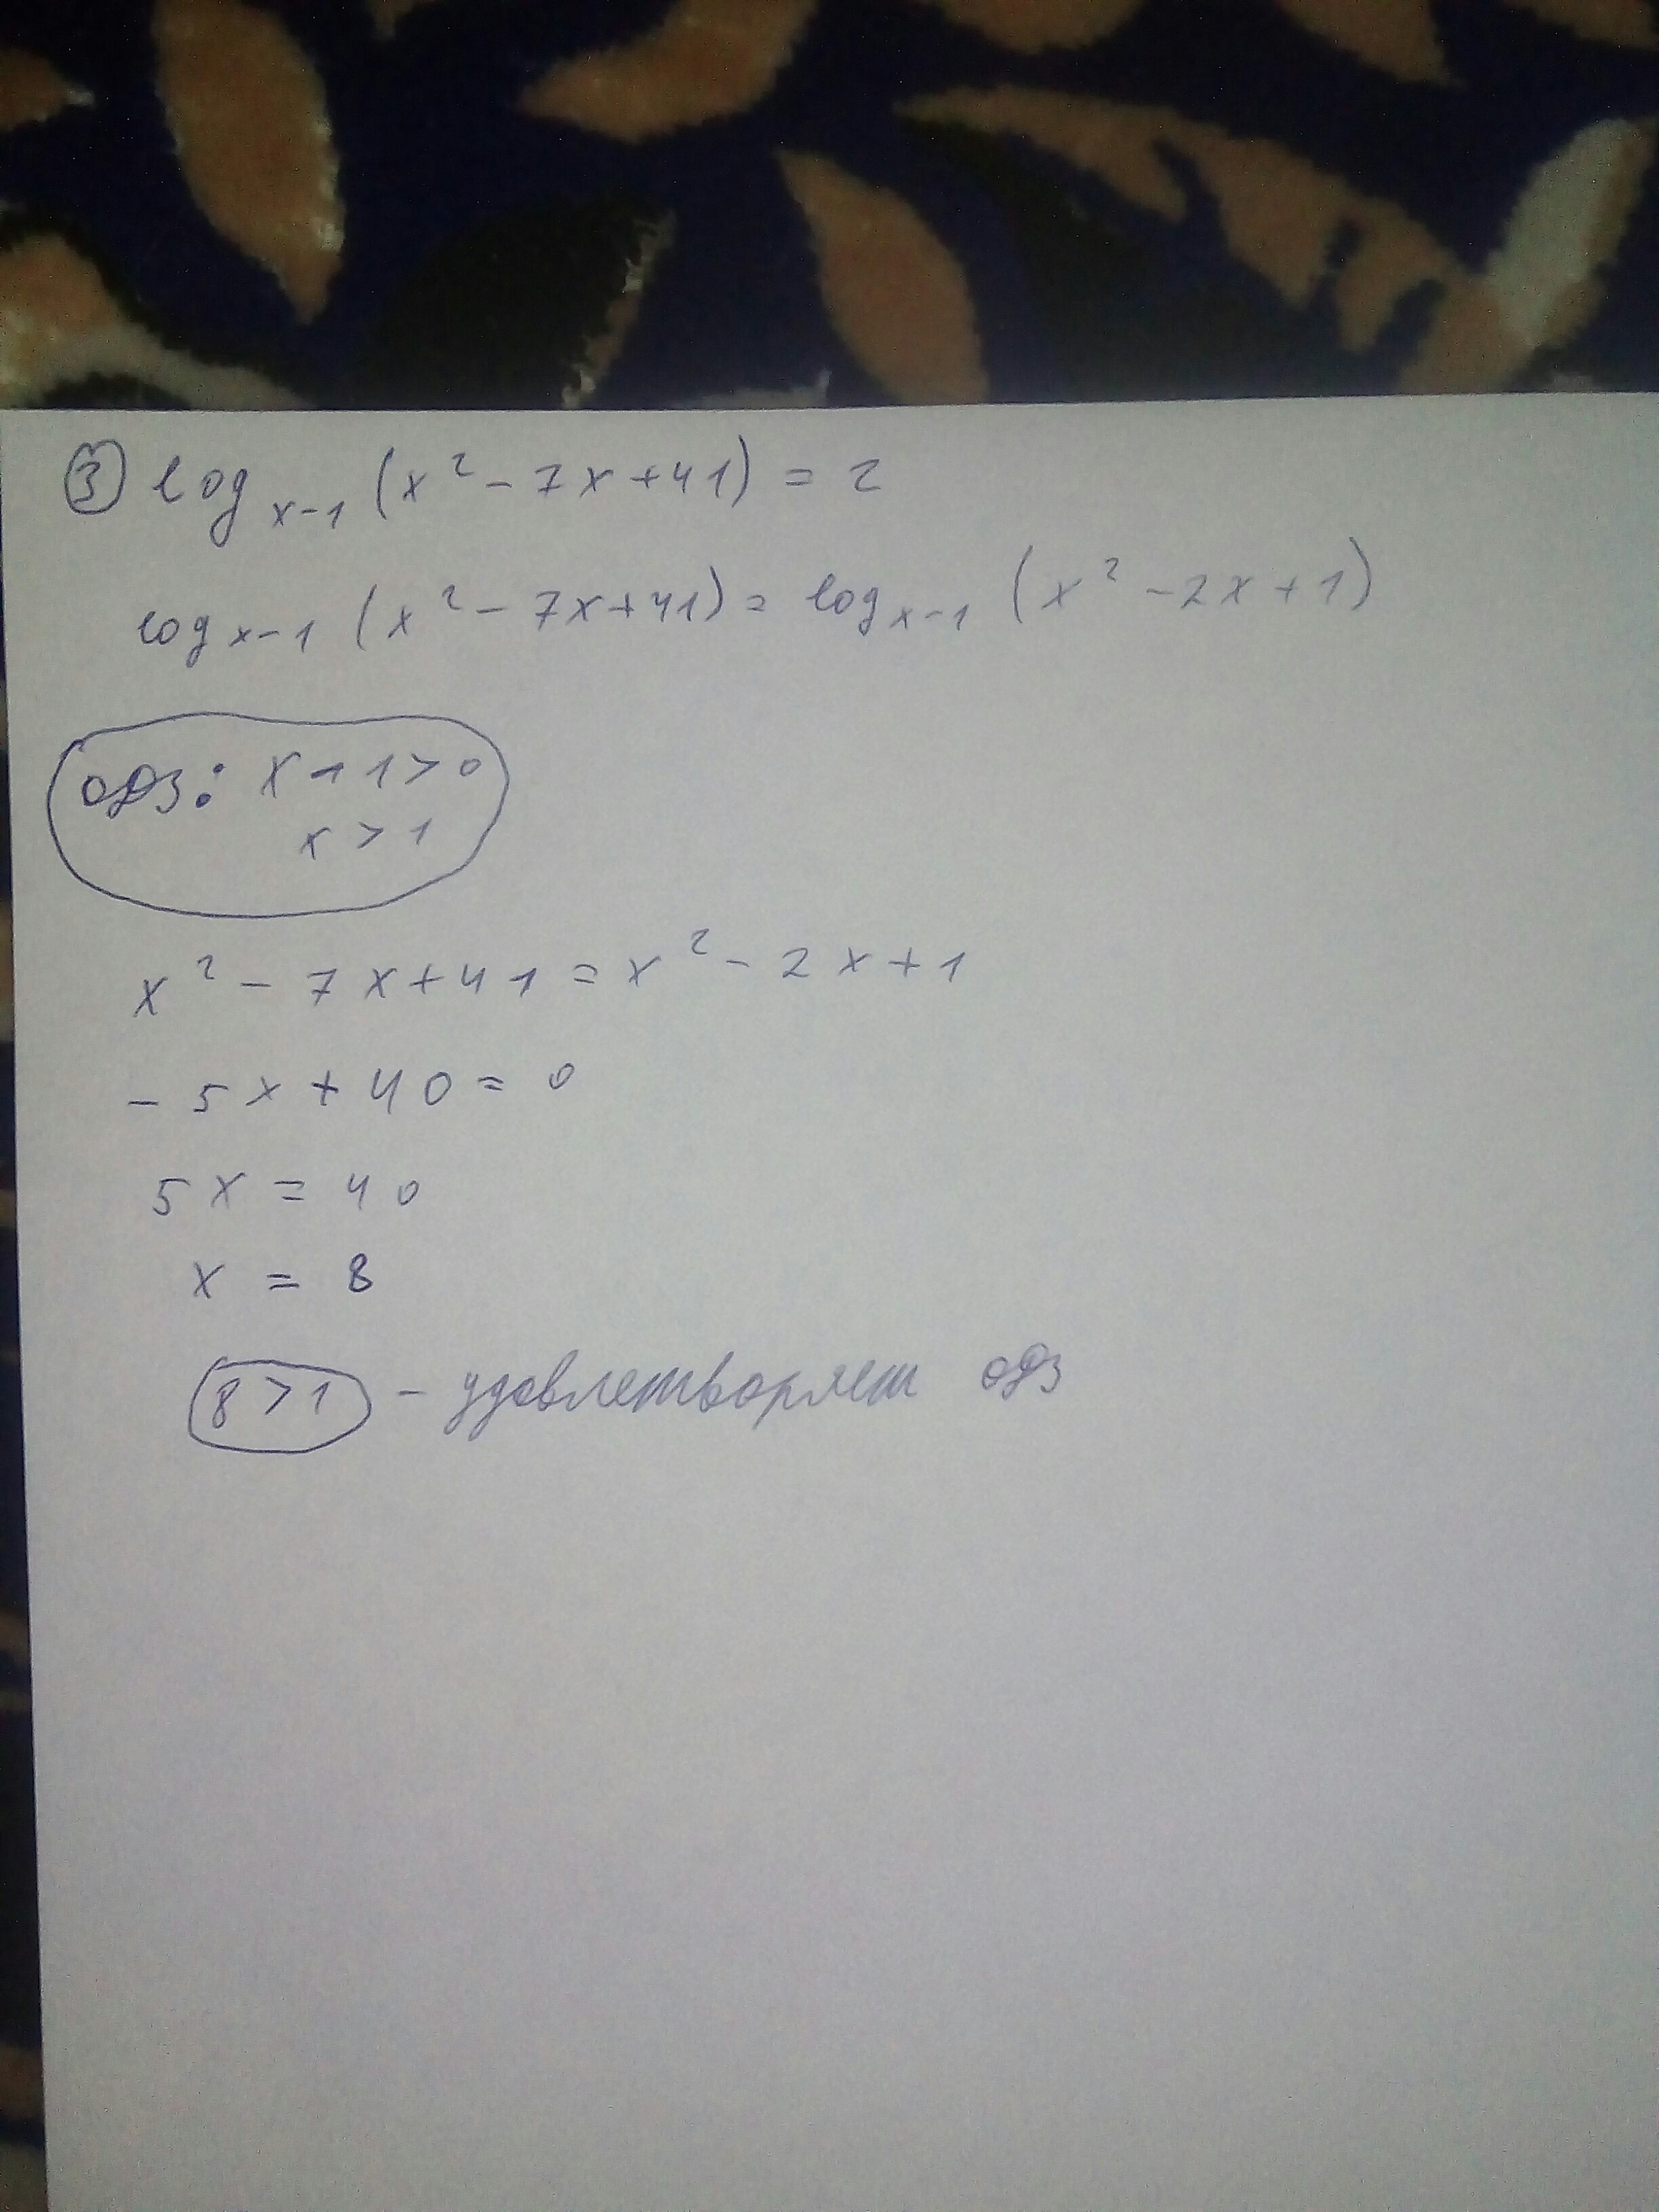 ③ log x-1 (x² - 7x + 41) = 2
log x-1 (x² - 7x + 41) = log x-1 (x² - 2x + 1)
ОДЗ: x - 1 > 0
x > 1
x² - 7x + 41 = x² - 2x + 1
- 5x + 40 = 0
5x = 40
x = 8
8 > 1 - удовлетворяет ОДЗ